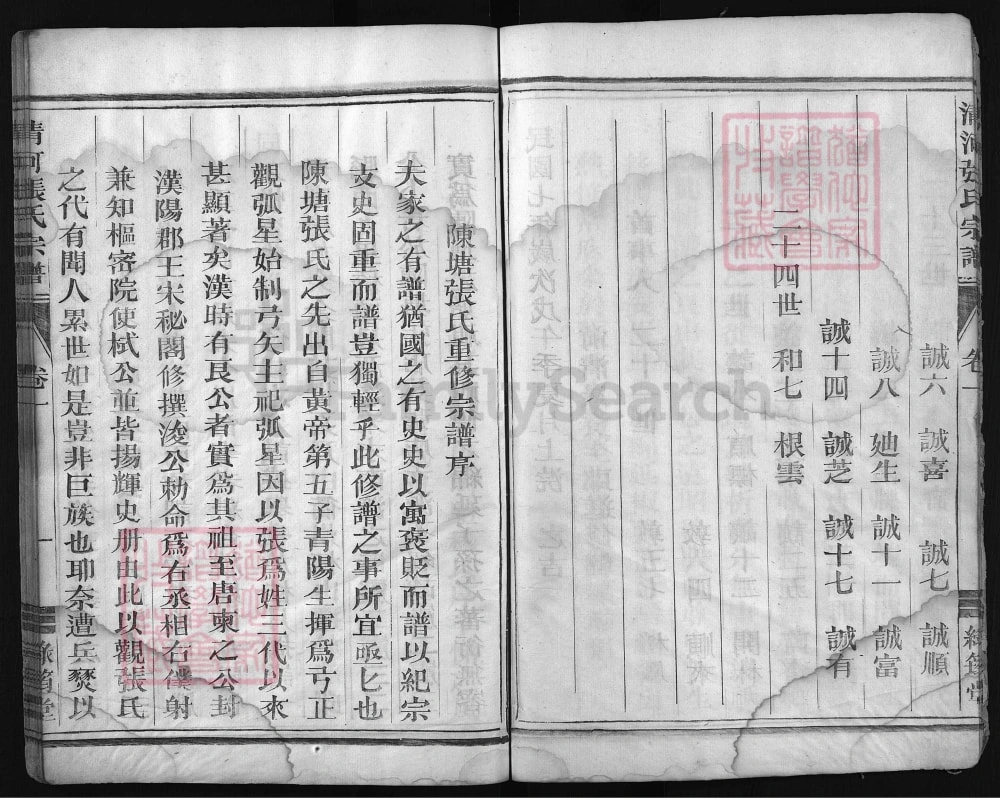 清河張氏宗譜
卷一
誠六 誠喜 誠七 誠順
誠八 廸生 誠十一 誠富
誠十四 誠芝 誠十七 誠有
二十四世 和七 根雲
陳塘張氏重修宗譜序
夫家之有譜猶國之有史史以寓褒貶而譜以紀宗
支史固重而譜豈獨輕乎此修譜之事所宜亟亟也
陳塘張氏之先出自黃帝第五子青陽生揮爲弓正
觀弧星始制弓矢主祀弧星因以張爲姓三代以來
甚顯著矣漢時有良公者實爲其祖至唐柬之公封
漢陽郡王宋秘閣修撰浚公勅命爲右丞相右僕射
兼知樞密院使栻公並皆揚輝史册由此以觀張氏
之代有聞人累世如是豈非巨族也耶奈遭兵燹以
清河張氏宗譜
卷一
一
FamilySearch